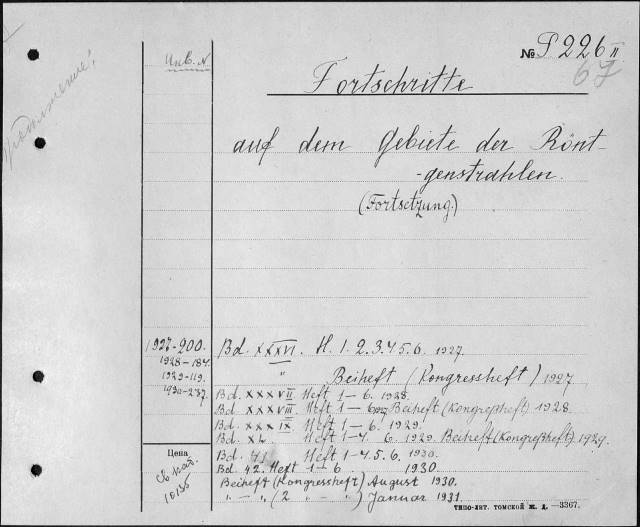 Инв. N
№ P 226 II
67
Fortschritte
auf dem Gebiete der Rönt-
-genstrahlen.
(Fortsetzung.)
1927-200.
1928-184.
1929-119.
1930-237.
Bd. XXXVI. H. 1. 2. 3. 4 5. 6. 1927.
" Beiheft (Kongressheft) 1927
Bd. XXXVII Heft 1-6. 1928.
Bd. XXXVIII Heft 1-6 Beiheft (Kongreßheft) 1928.
Bd. XXXIX. Heft 1-6. 1929.
Bd. XL. Heft 1-4. 6. 1929. Beiheft (Kongreßheft) 1929.
Bd. 41 Heft 1-4. 5. 6. 1930.
Bd. 42. Heft 1-6 1930.
Beiheft (Kongressheft) August 1930.
" - " (2 " - ") Januar 1931.
Цена
10135
ТИПО-ЛИТ. ТОМСКОЙ Ж. Д. —3367.